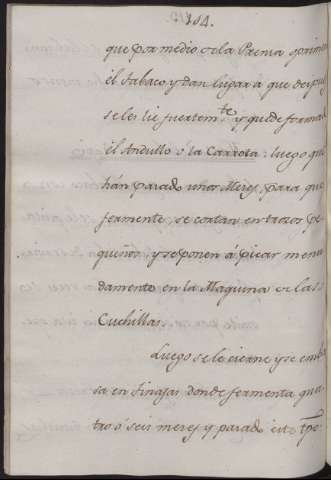 104.
que por medio de la Prensa oprimen
el Tabaco y dan lugar à que despues
se le lie fuertem.te y quede formado
èl Andullo ò la Carrota: luego que
hán pasado unos Meses, para que
fermente se cortan en trozos pe
queños, y se ponen á picar menu
damente en la Maquina de las
Cuchillas.
Luego se le cierne y se emba
sa en tinajas donde fermenta qua
tro ò seis meses y pasado este tpo